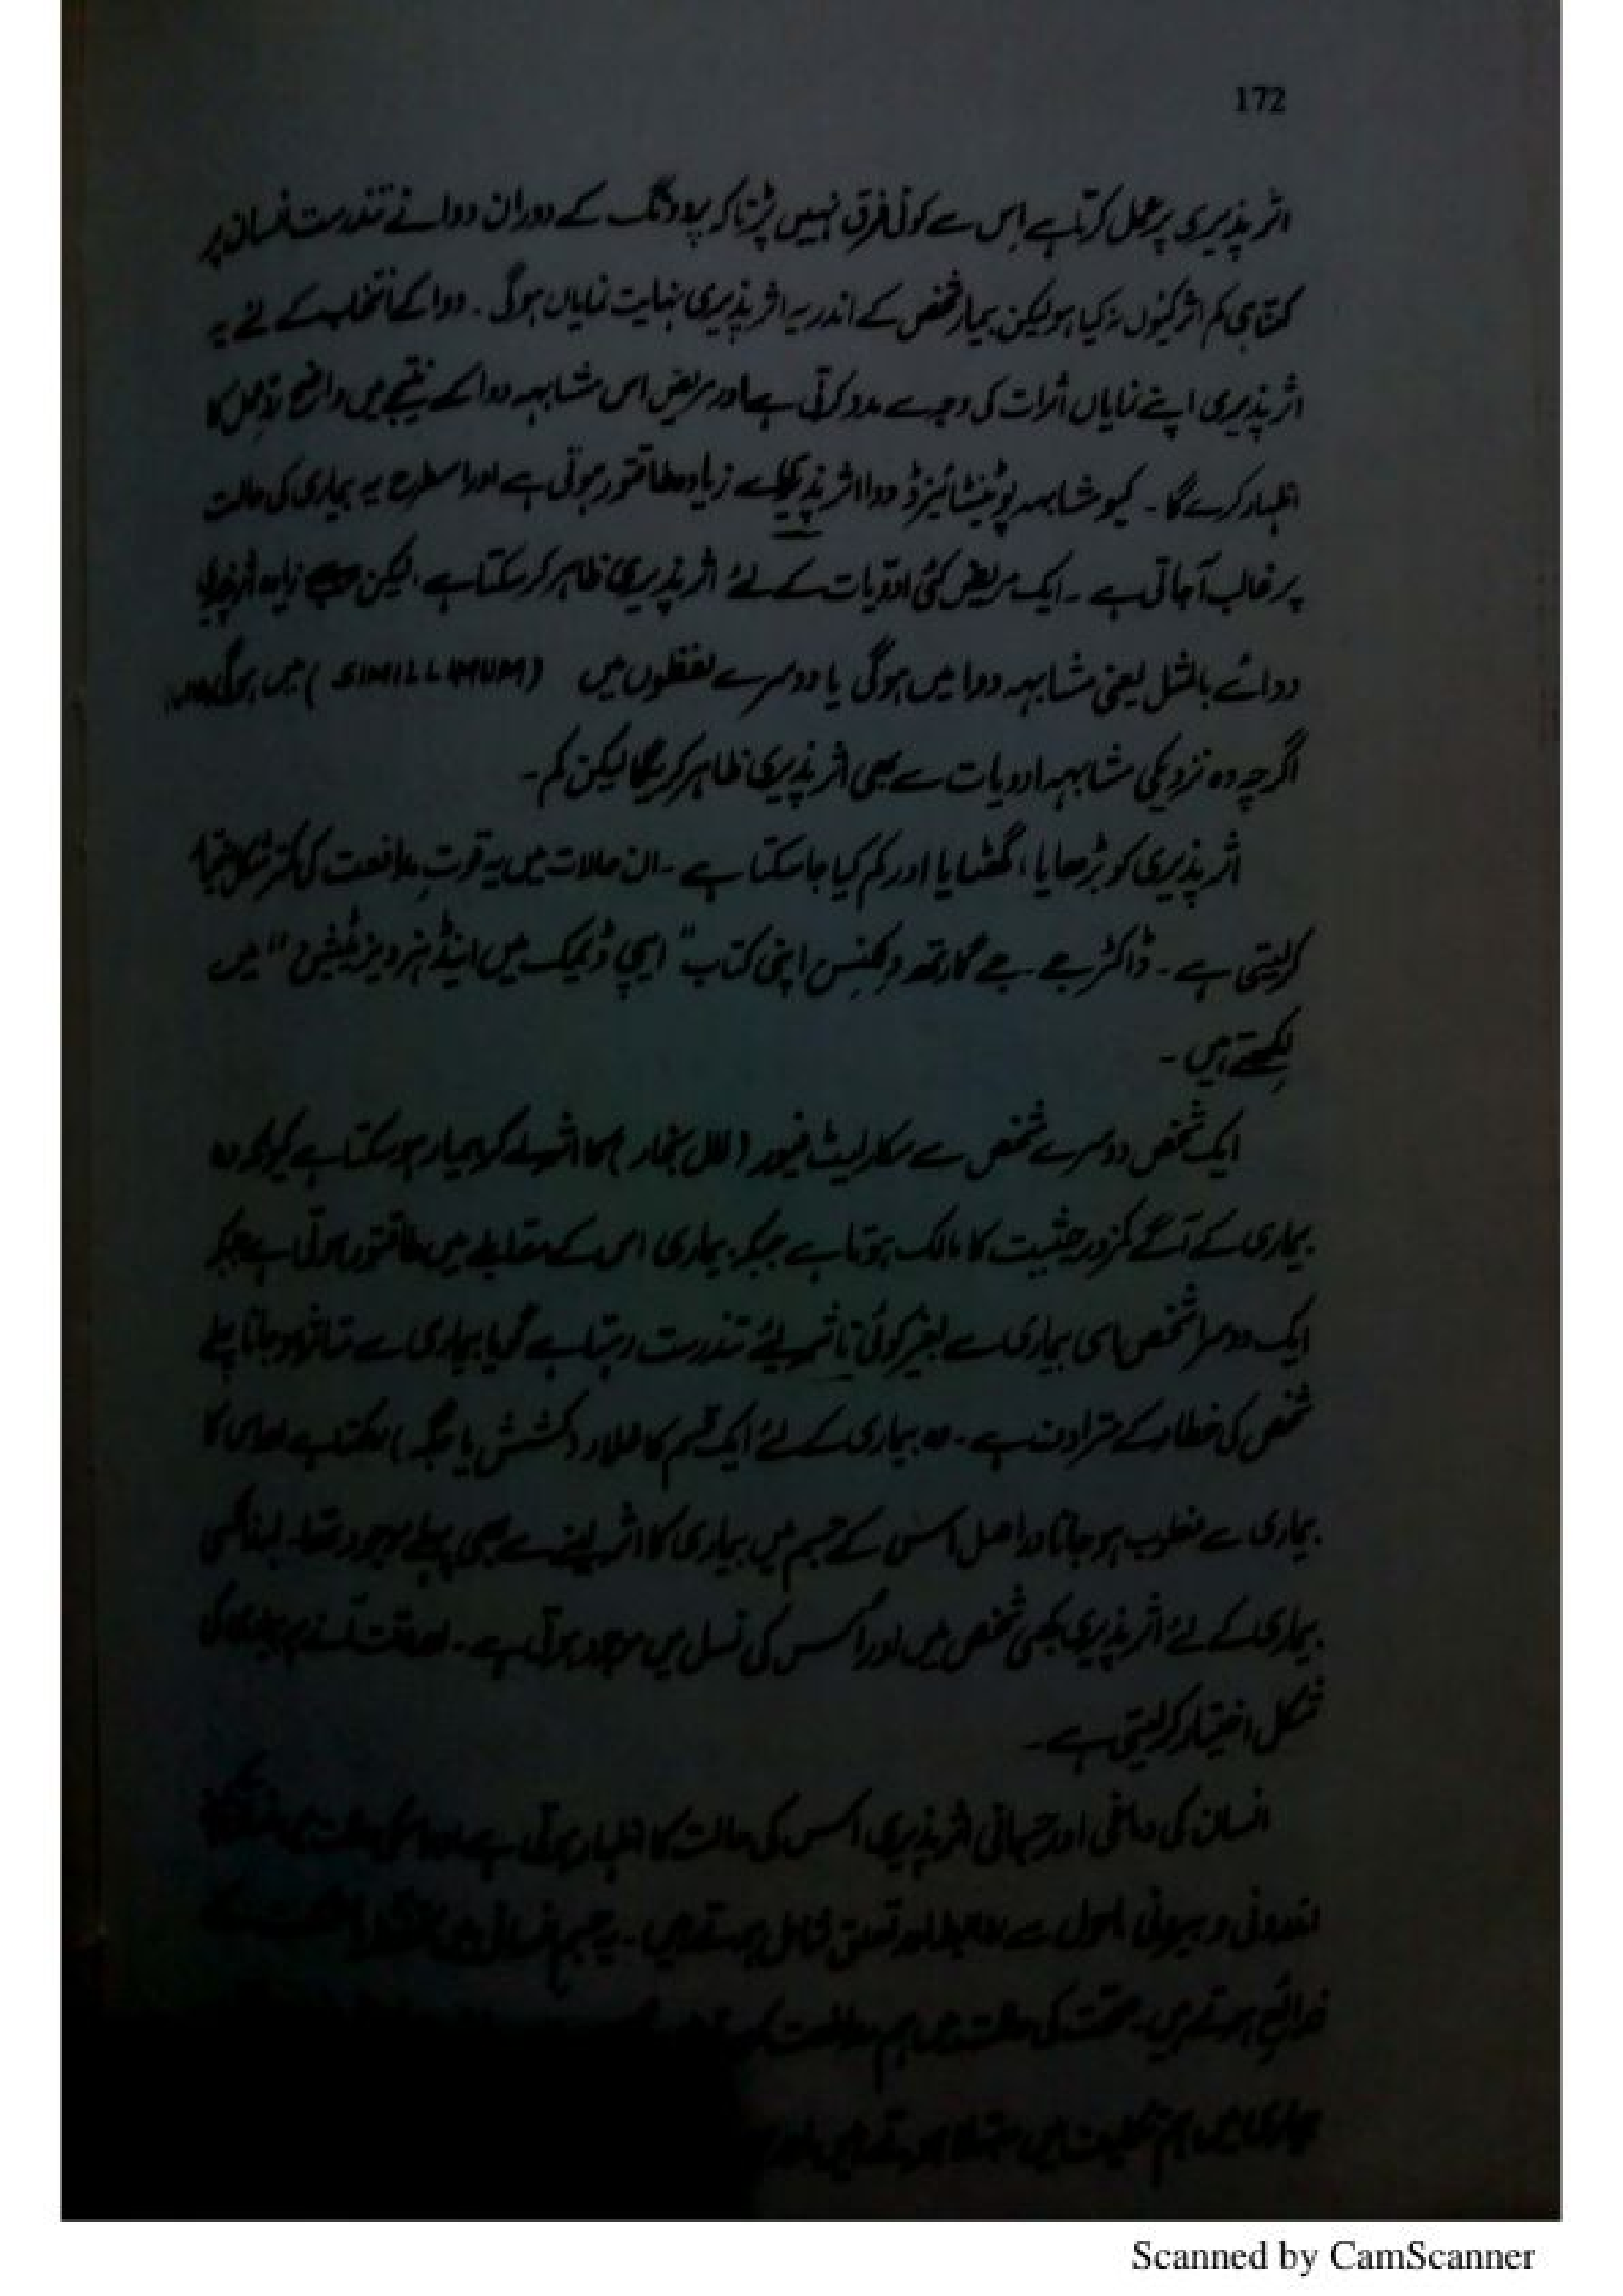 172
اثر پذیری پر عمل کرتا ہے اس سے کوئی فرق نہیں پڑتا کہ پروونگ کے دوران دوا نے تندرست انسان پر
کتنا ہی کم اثر کیوں نہ کیا ہو لیکن بیمار شخص کے اندر یہ اثر پذیری نہایت نمایاں ہوگی ۔ دوا کے انتخاب کے لئے یہ
اثر پذیری اپنے نمایاں اثرات کی وجہ سے مدد کرتی ہے اور مریض اس مشابہہ دوا کے نتیجے میں واضح ردِّعمل کا
اظہار کرے گا ۔ کیونکہ مشابہہ پوٹینشائیزڈ دوا اثر پذیری سے زیادہ طاقتور ہوتی ہے اور اسطرح یہ بیماری کی حالت
پر غالب آجاتی ہے ۔ ایک مریض کئی ادویات کے لئے اثر پذیری ظاہر کر سکتا ہے لیکن سب سے زیادہ اثر پذیری
دوائے بالمثل یعنی مشابہہ دوا میں ہوگی یا دوسرے لفظوں میں (SIMILLIMUM) میں ہوگی
اگرچہ وہ نزدیکی مشابہہ ادویات سے بھی اثر پذیری ظاہر کریگا لیکن کم ۔
اثر پذیری کو بڑھایا ، گھٹایا اور کم کیا جاسکتا ہے ۔ ان حالات میں یہ قوتِ مدافعت کی کمتر شکل اختیار
کر لیتی ہے ۔ ڈاکٹر جے جے گارتھ ولکنسن اپنی کتاب " ایپی ڈیمک مین اینڈ ہز ویزیٹیشن " میں
لکھتے ہیں ۔
ایک شخص دوسرے شخص سے سکارلیٹ فیور (لال بخار) کا اثر لے کر بیمار ہو سکتا ہے کیونکہ وہ
بیماری کے آگے کمزور حیثیت کا مالک ہوتا ہے جبکہ بیماری اس کے مقابلے میں طاقتور ہوتی ہے جبکہ
ایک دوسرا شخص اسی بیماری سے بغیر کوئی تاثر لئے تندرست رہتا ہے گویا بیماری سے متاثر ہو جانا پہلے
شخص کی خطا کے مترادف ہے ۔ وہ بیماری کے لئے ایک قسم کا خلاء (کشش یا جگہ) رکھتا ہے اور اس کا
بیماری سے مغلوب ہو جانا دراصل اس کے جسم میں بیماری کا اثر لینے سے بھی پہلے موجود تھا ۔ لہذا کسی
بیماری کے لئے اثر پذیری کسی شخص میں اور اُس کی نسل میں موجود ہوتی ہے ۔ اور وقت آنے پر بیماری کی
شکل اختیار کر لیتی ہے ۔
انسان کی دماغی اور جسمانی اثر پذیری اس کی حالت کا اظہار ہوتی ہے
اندرونی و بیرونی ماحول سے رابطہ اور تعلق شامل ہوتے ہیں ۔ یہ جسم انسانی میں
ذرائع ہوتے ہیں ۔ صحت کی حالت میں ہم مدافعت
بیماری میں ہم تکلیف میں مبتلا ہوتے ہیں اور
Scanned by CamScanner